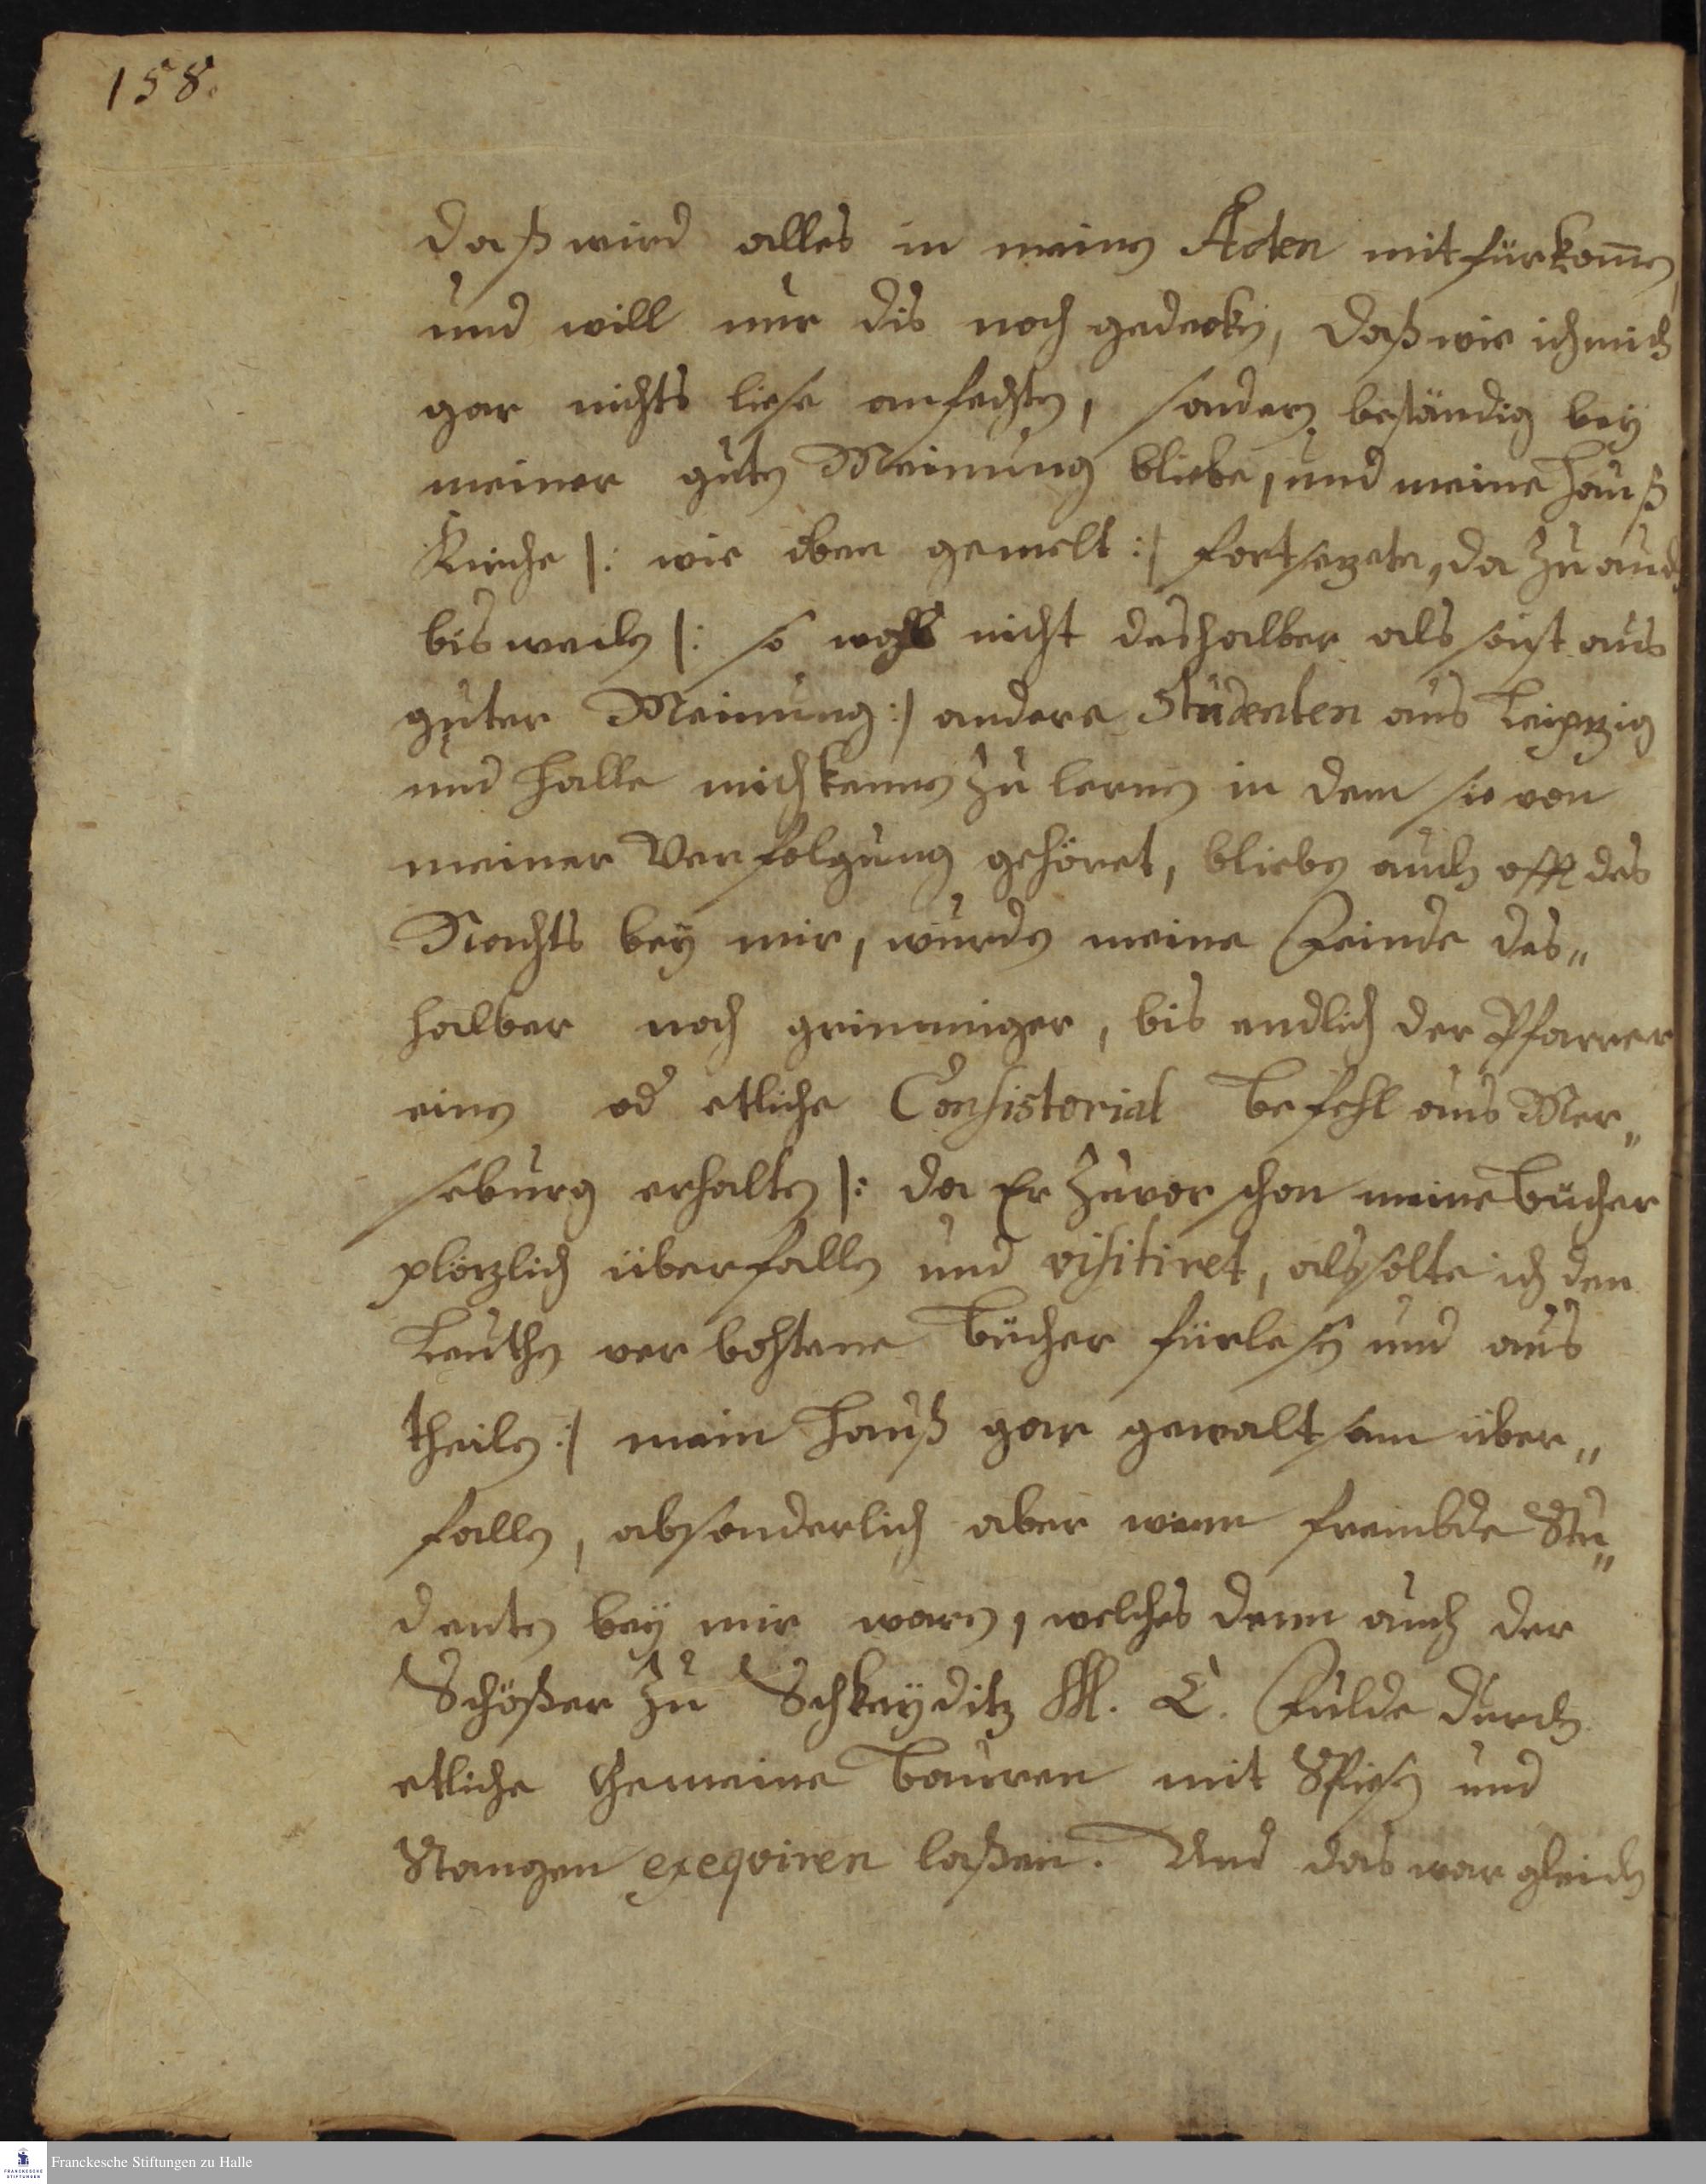 158.
daß wird alles in meinen Acten mit fürkom̄en,
und will nur dis noch gedencken, daß wie ich mich
gar nichts liese anfechten, sondern beständig bey
meiner guten Meinung bliebe, und meine Hauß
Kirche |: wie oben gemelt :| fortsezete, da zu auch
bisweilen |: so wohl nicht deshalber als sonst aus
guter Meinung :| andere Studenten aus Leipzig
und Halle mich kennen zu lernen in dem sie von
meiner Verfolgung gehöret, blieben auch offt des
Nachts bey mir, wurden meine Feinde des„
halber noch grimmiger, bis endlich der Pfarrer
einen od etliche Consistorial Befehl aus Mer„
seburg erhalten |: da Er zuvor schon meine Bücher
plözlich überfallen und visitiret, als solte ich den
Leuthen verbohtene Bücher fürlesen und aus
theilen :| mein Hauß gar gewaltsam über„
fallen, absonderlich aber wenn frembde Stu„
denten bey mir waren, welches denn auch der
Schößer zu Schkeyditz Fulde durch
etliche Gemeine Bauren mit Spiesen und
Stangen exeqviren laßen. Und das war gleich
Franckesche Stiftungen zu Halle
FRANCKESCHE
STIFTUNGEN